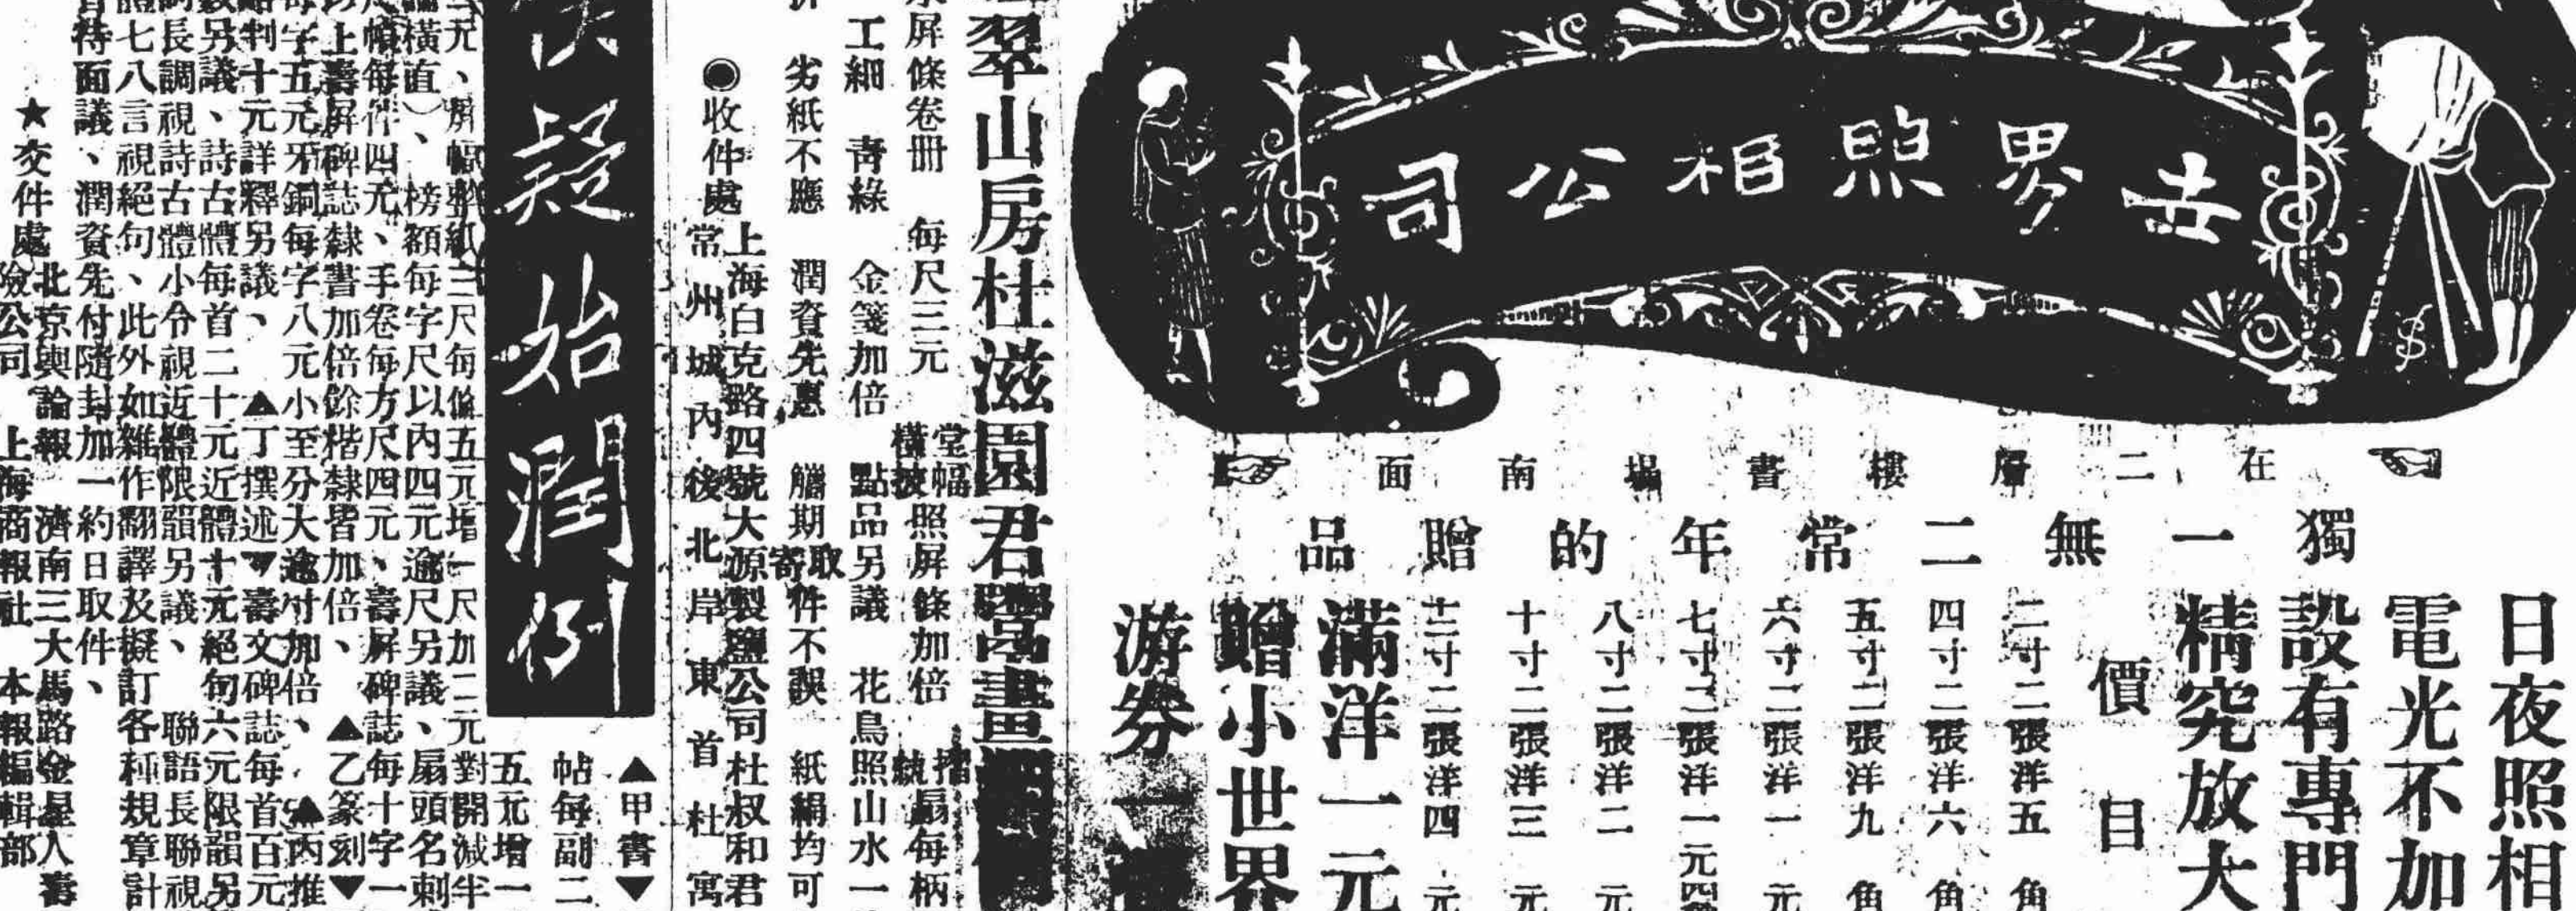 世界照相公司
在二層樓書場南面
獨一無二常年的贈品
日夜照相
電光不加
設有專門
精究放大
價目
二寸二張洋五角
四寸二張洋六角
五寸二張洋九角
六寸二張洋一元
七寸二張洋一元四
八寸二張洋二元
十寸二張洋三元
十二寸二張洋四元
滿洋一元
贈小世界
游券一
翠山房杜滋園君鬻畫
屏條卷冊 每尺三元 堂幅橫披照屏條加倍 摺紈扇每柄
工細 青綠 金箋加倍 點品另議 花鳥照山水一
劣紙不應 潤資先惠 期取件不誤 紙絹均可
◉收件處 上海白克路四號大源製鹽公司杜叔和君
常州城內後北岸東首杜寓
疑始潤例
▲甲書▼
帖每副二
五元增一
元、屏幅整紙三尺每條五元增一尺加二元對開減半
橫直)、榜額每字尺以內四元逾尺另議、扇頭名刺
每件四元、手卷每方尺四元、壽屏碑誌每十字一
上壽屏碑誌隸書加倍餘楷隸皆加倍、▲乙篆刻▼
字五元牙銅每字八元小至分大逾寸加倍、▲丙推
判十元詳釋另議、▲丁撰述▼壽文碑誌每首百元
另議、詩古體每首二十元近體十元絕句六元限韻另
詞長調視詩古體小令視近體限韻另議、聯語長聯視
體七八言視絕句、此外如雜作翻譯及擬訂各種規章計
待面議、潤資先付隨封加一約日取件、
★交件處 北京輿論報 濟南三大馬路金星人壽
險公司 上海商報社 本報編輯部